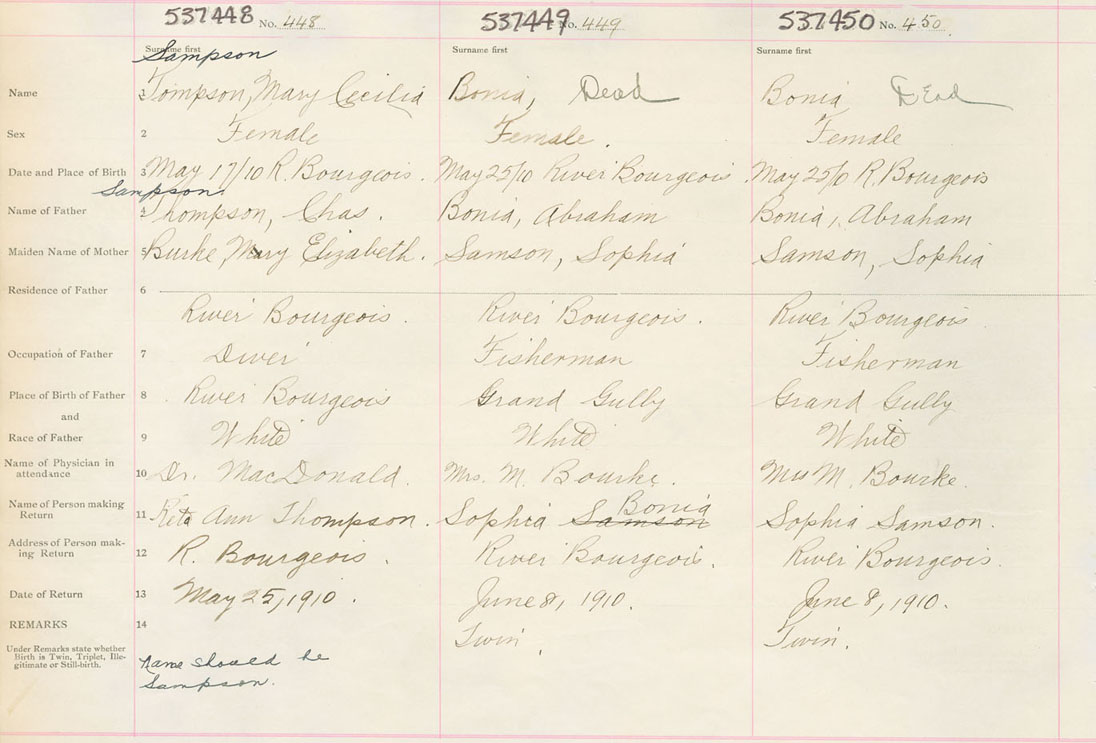 537448 No. 448 537449 No. 449 537450 No. 450
Surname first Surname first Surname first
Sampson
Name 1 Tompson, Mary Cecilia Bonia, Dead Bonia Dead
Sex 2 Female Female. Female
Date and Place of Birth 3 May 17/10 R. Bourgeois. May 25/10 River Bourgeois May 25/10 R. Bourgeois
Sampson
Name of Father 4 Thompson, Chas. Bonia, Abraham Bonia, Abraham
Maiden Name of Mother 5 Burke, Mary Elizabeth. Samson, Sophia Samson, Sophia
Residence of Father 6
River Bourgeois. River Bourgeois. River Bourgeois
Occupation of Father 7 Diver Fisherman Fisherman
Place of Birth of Father 8 River Bourgeois Grand Gully Grand Gully
and
Race of Father 9 White White White
Name of Physician in
attendance 10 Dr. MacDonald. Mrs. M. Bourke. Mrs M. Bourke.
Bonia
Name of Person making
Return 11 Reta Ann Thompson. Sophia Samson Sophia Samson.
Address of Person mak-
ing Return 12 R. Bourgeois. River Bourgeois. River Bourgeois.
Date of Return 13 May 25, 1910. June 8, 1910. June 8, 1910.
REMARKS 14
Twin. Twin.
Under Remarks state whether
Birth is Twin, Triplet, Ille-
gitimate or Still-birth.
Name should be
Sampson.